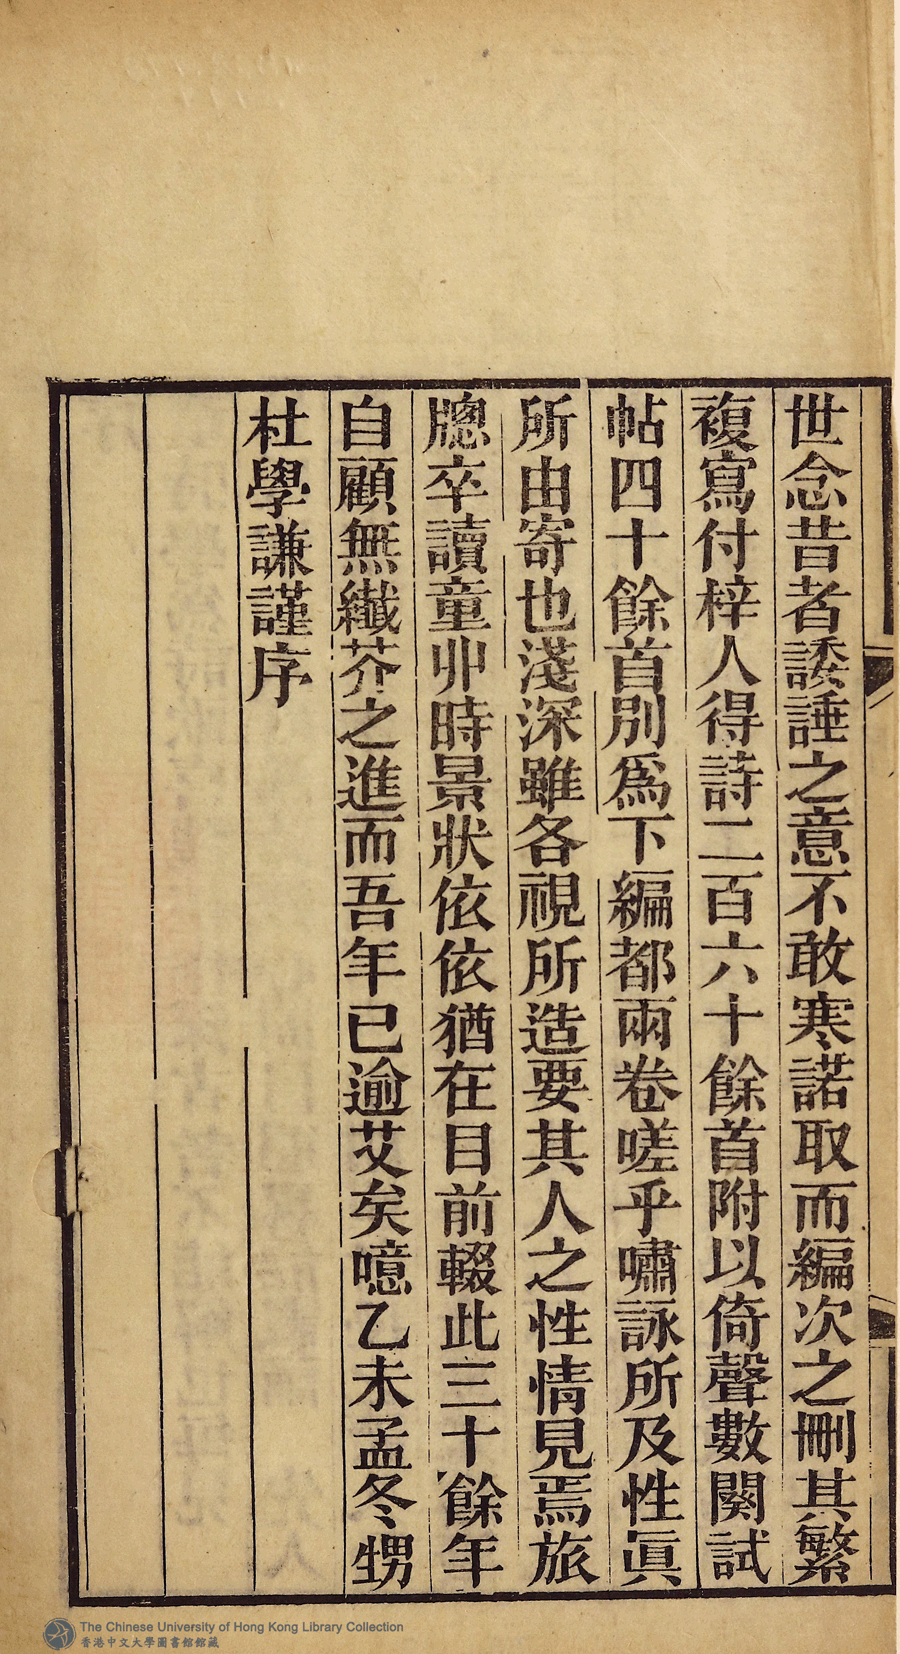 世念昔者諉諈之意不敢寒諾取而編次之刪其繁
複寫付梓人得詩二百六十餘首附以倚聲數闋試
帖四十餘首別爲下編都兩卷嗟乎嘯詠所及性眞
所由寄也淺深雖各視所造要其人之性情見焉旅
牕卒讀童丱時景狀依依猶在目前輟此三十餘年
自顧無纖芥之進而吾年已逾艾矣噫乙未孟冬甥
杜學謙謹序
The Chinese University of Hong Kong Library Collection
香港中文大學圖書館館藏